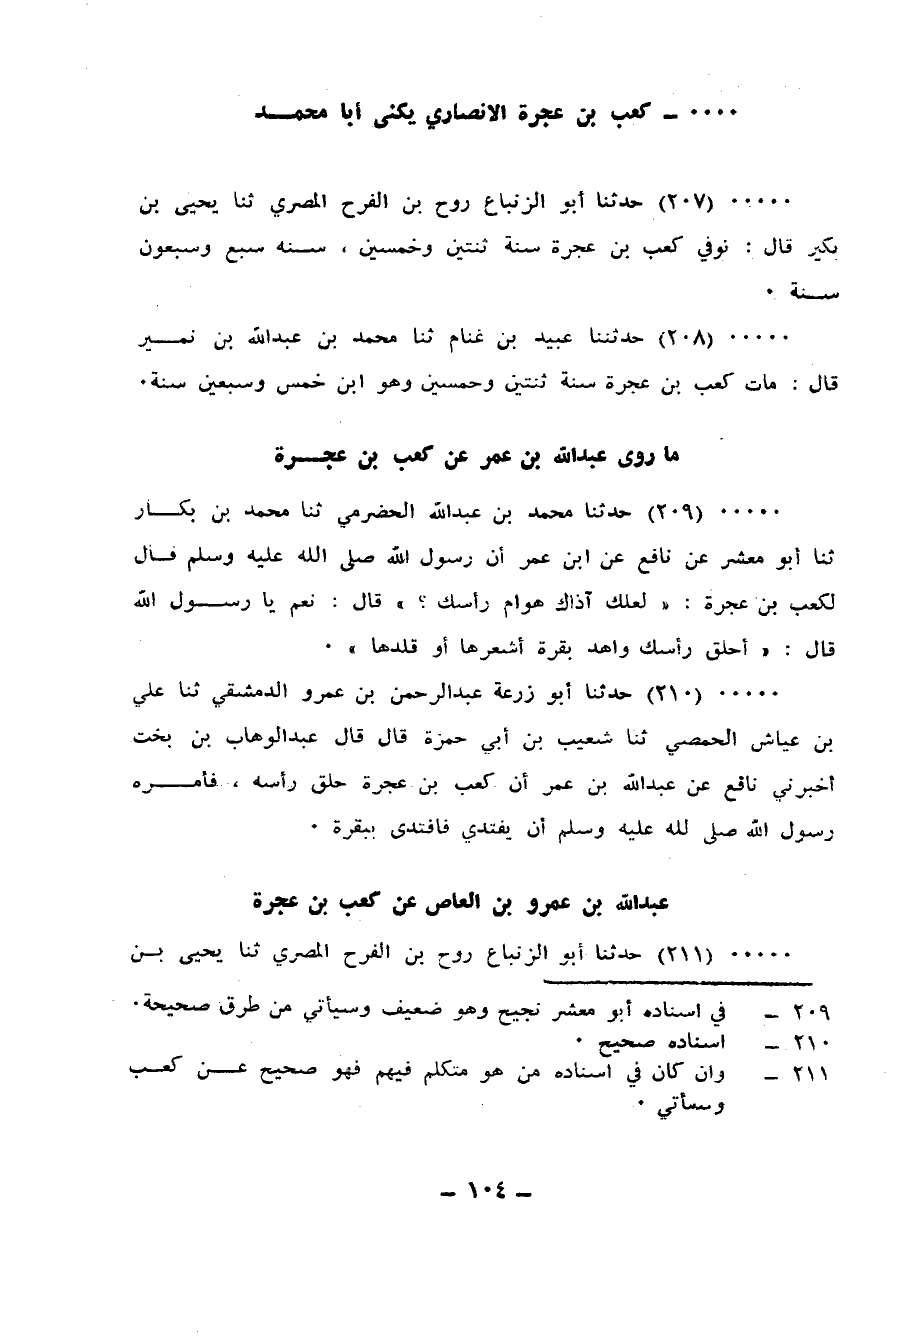 ٠٠٠٠ ـ كعب بن عجرة الانصاري يكنى أبا محمـــد
٠٠٠٠٠ (٢٠٧) حدثنا أبو الزنباع روح بن الفرح المصري ثنا يحيى بن
بكير قال : توفي كعب بن عجرة سنة ثنتين وخمسين ، سـنه سبع وسبعون
ســنة ٠
٠٠٠٠٠ (٢٠٨) حدثننا عبيد بن غنام ثنا محمد بن عبدالله بن نمـــير
قال : مات كعب بن عجرة سنة ثنتين وخمسين وهو ابن خمس وسبعين سنة٠
ما روى عبدالله بن عمر عن كعب بن عجـــرة
٠٠٠٠٠ (٢٠٩) حدثنا محمد بن عبدالله الحضرمي ثنا محمد بن بكـــار
ثنا أبو معشر عن نافع عن ابن عمر أن رسول الله صلى الله عليه وسلم قــال
لكعب بن عجرة : « لعلك آذاك هوام رأسك ؟ » قال : نعم يا رســـول الله
قال : « أحلق رأسك واهد بقرة أشعرها أو قلدها » ٠
٠٠٠٠٠ (٢١٠) حدثنا أبو زرعة عبدالرحمن بن عمرو الدمشقي ثنا علي
بن عياش الحمصي ثنا شعيب بن أبي حمزة قال قال عبدالوهاب بن بخت
أخبرني نافع عن عبدالله بن عمر أن كعب بن عجرة حلق رأسه ، فأمـــره
رسول الله صلى لله عليه وسلم أن يفتدي فافتدى ببقرة ٠
عبدالله بن عمرو بن العاص عن كعب بن عجرة
٠٠٠٠٠ (٢١١) حدثنا أبو الزنباع روح بن الفرح المصري ثنا يحيى بـن
٢٠٩ ـ في اسناده أبو معشر نجيح وهو ضعيف وسيأتي من طرق صحيحة٠
٢١٠ ـ اسناده صحيح ٠
٢١١ ـ وان كان في اسناده من هو متكلم فيهم فهو صحيح عـــن كعــب
وسيأتي ٠
ـ ١٠٤ ـ